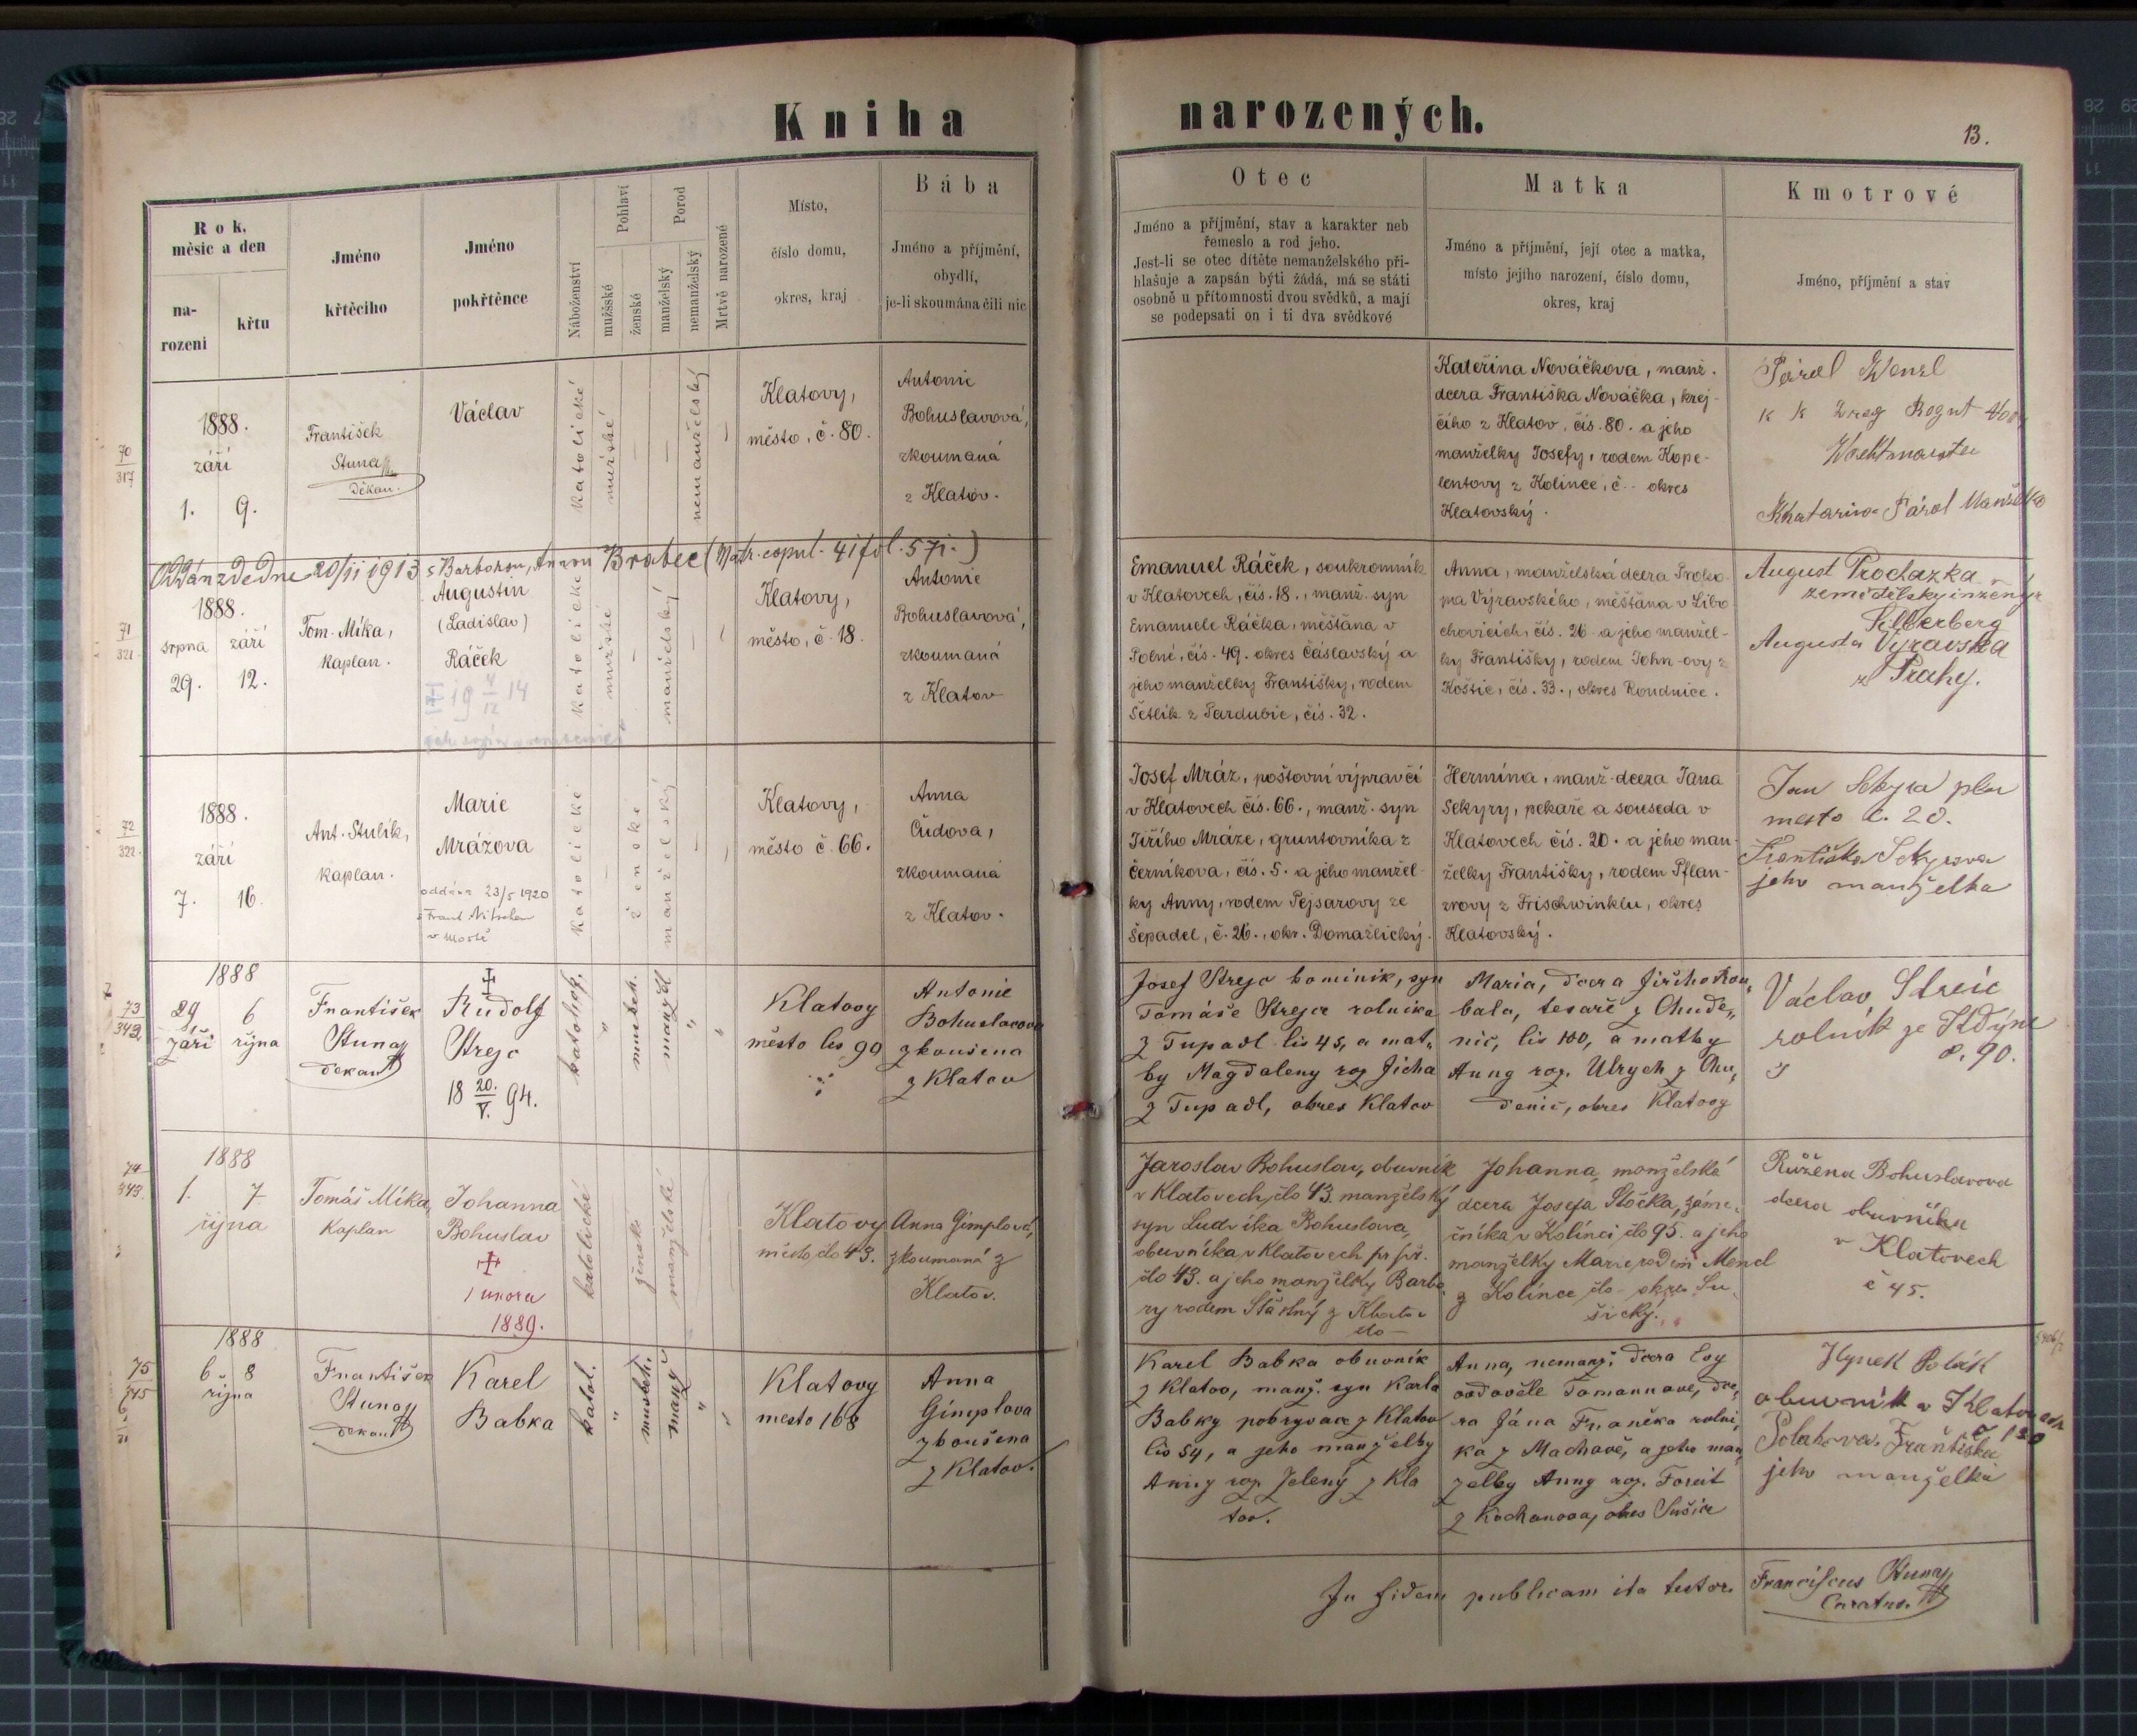 Kniha narozených.
13.
Rok, měsíc a den
na-
rození
křtu
Jméno
křtěcího
Jméno
pokřtěnce
Náboženství
Pohlaví
mužské
ženské
Porod
manželský
nemanželský
Mrtvě narozené
Místo,
číslo domu,
okres, kraj
Bába
Jméno a příjmění,
obydlí,
je-li skoumána čili nic
Otec
Jméno a příjmění, stav a karakter neb
řemeslo a rod jeho.
Jest-li se otec dítěte nemanželského při-
hlašuje a zapsán býti žádá, má se státi
osobně u přítomnosti dvou svědků, a mají
se podepsati on i ti dva svědkové
Matka
Jméno a příjmění, její otec a matka,
místo jejího narození, číslo domu,
okres, kraj
Kmotrové
Jméno, příjmění a stav
70
317
1888.
září
1. 9.
František
Stunay
Děkan.
Václav
katolické
mužské
nemanželský
Klatovy,
město, č. 80.
Antonie
Bohuslavová,
zkoumaná
z Klatov.
Kateřina Nováčkova, manž.
dcera Františka Nováčka, krej-
čího z Klatov, čís. 80. a jeho
manželky Josefy, rodem Kope-
lentovy z Kolince, č-- okres
Klatovský.
Párol Wenzl
k k Drag Regnt
Wachtmaister
Khatarina Párol Manželka
Oddán zde dne 20/11 1913 s Barborou, Annou Brabec (Matr. copul. 41 fol. 571.)
71
321
1888.
srpna září
29. 12.
Tom. Míka,
kaplan.
Augustin
(Ladislav)
Ráček
19 4/12 14
katolické
mužské
manželský
Klatovy,
město, č. 18.
Antonie
Bohuslavová,
zkoumaná
z Klatov
Emanuel Ráček, soukromník
v Klatovech, čís. 18., manž. syn
Emanuele Ráčka, měšťana v
Polné, čís. 49. okres Čáslavský a
jeho manželky Františky, rodem
Šetlík z Pardubic, čís. 32.
Anna, manželská dcera Proko-
pa Výravského, měšťana v Libo-
chovicích, čís. 26 a jeho manžel-
ky Františky, rodem John-ovy z
Koštic, čís. 33., okres Roudnice.
August Prochazka
zemědělský inženýr
Silberberg
Augusta Výravska
z Prahy.
72
322.
1888.
září
7. 16.
Ant. Stulík,
kaplan.
Marie
Mrázova
oddána 23/5 1920
v Mostě
katolické
ženské
manželský
Klatovy,
město č. 66.
Anna
Čudova,
zkoumaná
z Klatov.
Josef Mráz, poštovní výpravčí
v Klatovech čís. 66., manž. syn
Jiřího Mráze, gruntovníka z
Černíkova, čís. 5. a jeho manžel-
ky Anny, rodem Pejsarovy ze
Šepadel, č. 26., okr. Domažlický.
Hermína, manž. dcera Jana
Sekyry, pekaře a souseda v
Klatovech čís. 20. a jeho man-
želky Františky, rodem Pflan-
zrovy z Frischwinklu, okres
Klatovský.
Jan Sekyra
mesto č. 20.
Františka Sekyrova
jeho manželka
73
342
1888
29 6
září října
František
Stunay
děkan
Rudolf
Strejc
18 20./V. 94.
katolicg.
mužsk.
manžel
Klatovy
město čís 90
Antonie
Bohuslavova
zkoušena
z Klatov
Josef Strejc kominík, syn
Tomáše Strejce rolníka
z Tupadl čís 45, a mat-
ky Magdaleny roz Jícha
z Tupadl, okres Klatov
Maria, dcera Jiřího Rou-
bala, tesaře z Chude-
nic, čís 100, a matky
Anny roz. Ulrych z Chu-
denic, okres Klatovy
Václav Streic
rolník ze Kdýně
č. 90.
74
343.
1888
1. 7
října
Tomáš Míka,
kaplan
Johanna
Bohuslav
1 unora
1889.
katolické
ženské
manželské
Klatovy
město, čło 43.
Anna Gimplová,
zkoumaná z
Klatov.
Jaroslav Bohuslav, obuvník
v Klatovech čło 43. manželský
syn Ludvíka Bohuslava,
obuvníka v Klatovech
čło 43. a jeho manželky Barbo-
ry rodem Šťastný z Klatov
čło –
Johanna, manželská
dcera Josefa Stočka, záme-
čníka v Kolínci čło 95. a jeho
manželky Marie, rodem Mencl
z Kolínce čło – okres Su-
šický.
Růžena Bohuslavova
dcera obuvníka
v Klatovech
č 45.
75
345
1888
6 8
října
František
Stunay
dekan
Karel
Babka
katol.
mužsk.
manž
Klatovy
mesto 168
Anna
Gimplova
zkoušena
z Klatov.
Karel Babka obuvník
z Klatov, manž. syn Karla
Babky pokryvače z Klatov
čís 54, a jeho manželky
Anny roz. Jelený z Kla
tov.
Anna, nemanž. dcera Evy
ovdověle Tomannove, dce-
ra Jána Franěka rolní-
ka z Machově, a jeho man-
želky Anny roz. Foreit
z Kochanova, okres Sušice
Hynek Polák
obuvník v Klatovech
č. 120
Polakova Františka
jeho manželka
In fidem publicam ita testor. Franciscus Stunay
Curatus.